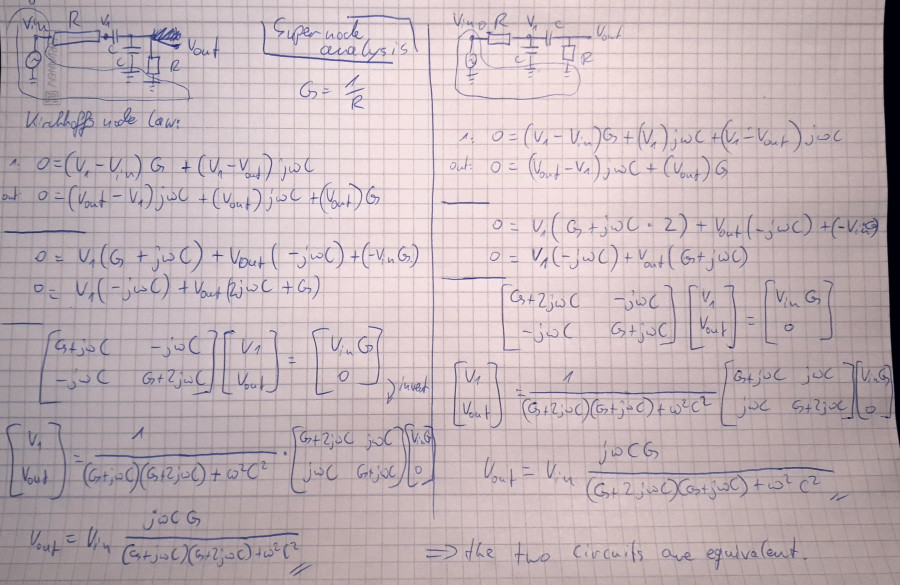 Vin R V1 C Vout
C R
Supernode
analysis
G = 1/R
Kirchhoffs node law:
1: 0 = (V1 - Vin) G + (V1 - Vout) jωC
out: 0 = (Vout - V1) jωC + (Vout) jωC + (Vout) G
0 = V1 (G + jωC) + Vout (-jωC) + (-Vin G)
0 = V1 (-jωC) + Vout (2jωC + G)
[G+jωC -jωC] [V1] = [Vin G]
[-jωC G+2jωC] [Vout] [0]
invert
[V1] = 1/((G+jωC)(G+2jωC) + ω²C²) · [G+2jωC jωC] [Vin G]
[Vout] [jωC G+jωC] [0]
Vout = Vin jωCG/((G+jωC)(G+2jωC)+ω²C²)
Vin R V1 C Vout
C R
1: 0 = (V1 - Vin) G + (V1) jωC + (V1 - Vout) jωC
out: 0 = (Vout - V1) jωC + (Vout) G
0 = V1 (G + jωC · 2) + Vout (-jωC) + (-Vin G)
0 = V1 (-jωC) + Vout (G + jωC)
[G+2jωC -jωC] [V1] = [Vin G]
[-jωC G+jωC] [Vout] [0]
[V1] = 1/((G+2jωC)(G+jωC) + ω²C²) [G+jωC jωC] [Vin G]
[Vout] [jωC G+2jωC] [0]
Vout = Vin jωCG/((G+2jωC)(G+jωC) + ω²C²)
=> the two circuits are equivalent.